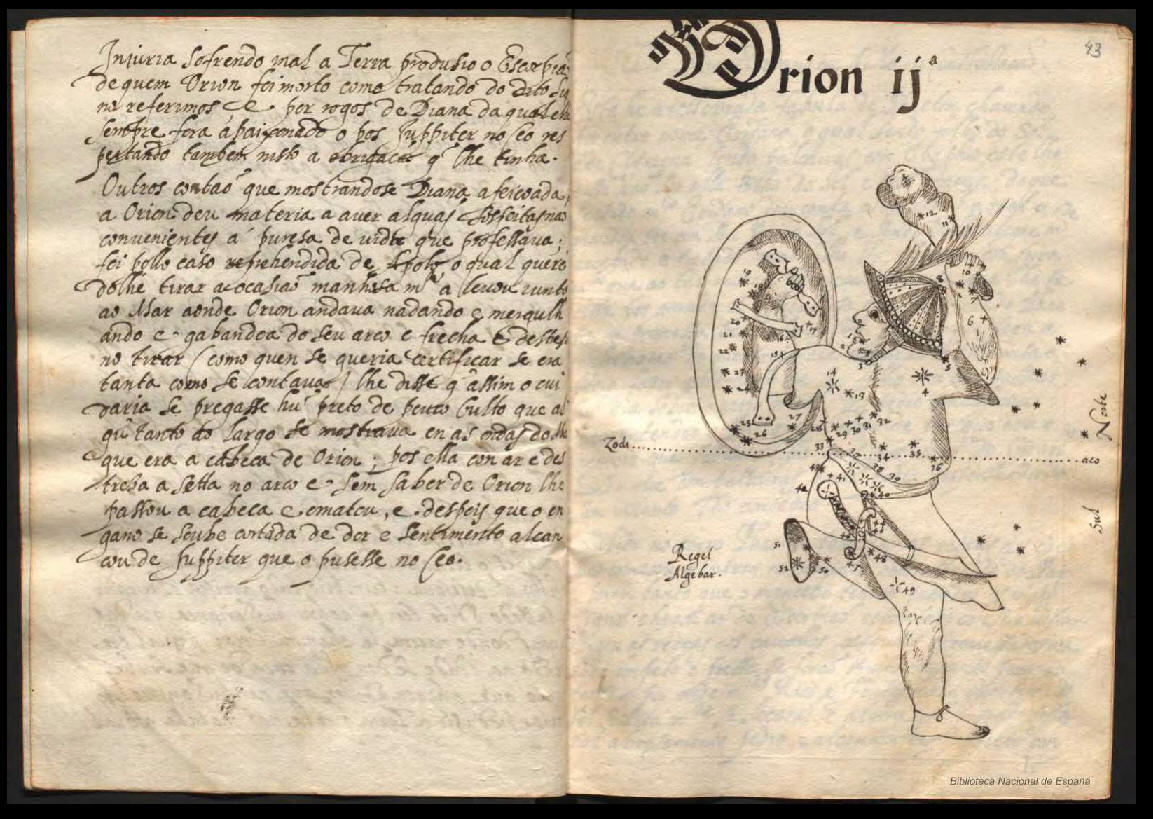 Injuria sofrendo mal a Terra produsio o Escorpiã
de quem Orion foi morto como tratando do dito
no referimos e por rogos de Diana da qual elle
sempre fora apaixonado o pos Juppiter no Ceo res
peitando tambem nisto a obrigacao q̃ lhe tinha.
Outros contaõ que mostrandose Diana afeicoada
a Orion deu materia a aver alguas sospeitas naõ
convenientes á puresa de vida que professava;
foi pollo caso reprehendida de o qual queren
dolhe tirar a ocasiaõ a levou junto
ao Mar aonde Orion andava nadando e mergulh
ando e gabandoa do seu arco e frecha e
no tirar (como quen se queria certificar se era
tanta como se contava) lhe disse q̃ assim o cui
daria se pregasse hũ preto de pouco bulto que al
gũ tanto ao largo se mostrava en as ondas do
que era a cabeca de Orion; pos ella con ar e des
treza a setta no arco e sem saber de Orion lhe
passou a cabeca e o matou, e despois que o en
gano se soube cortada de dor e sentimento alcan
cou de Juppiter que o pusesse no Ceo.
43
Orion ijª
12
11
10
6
14
13
27
26
29
30
31
32
33
34
35
36
Zodi
aco
Norte
Sul
48
49
50
51
52
Regel
Algebar.
Biblioteca Nacional de España